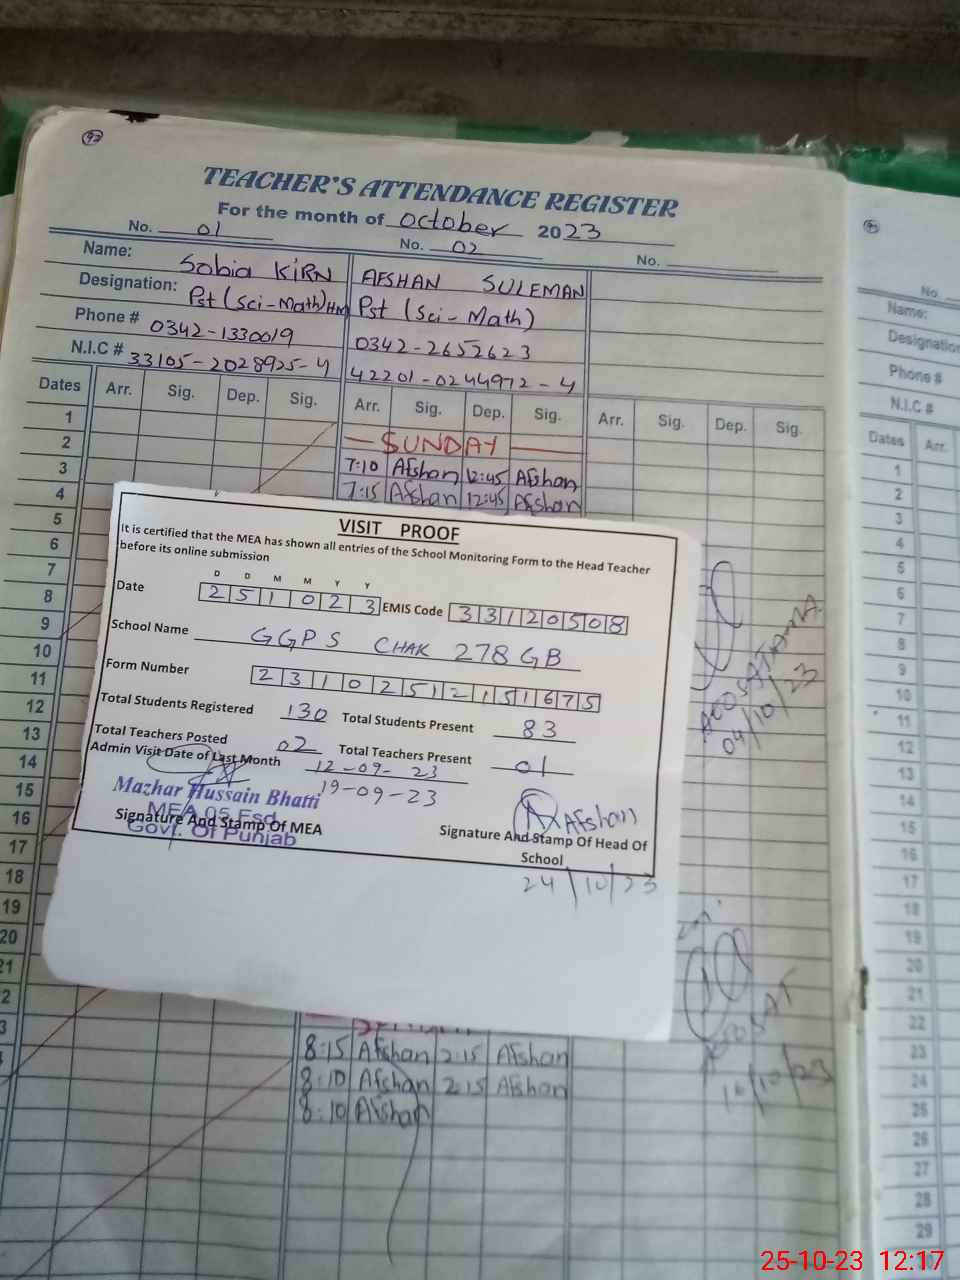 92
TEACHER'S ATTENDANCE REGISTER
For the month of October 2023
No. 01 No. 02 No.
Name: Sobia KIRN AFSHAN SULEMAN
Designation: Pst (Sci-Math) HM Pst (Sci-Math)
Phone # 0342-1330019 0342-2652623
N.I.C # 33105-2028925-4 42201-0244972-4
Dates Arr. Sig. Dep. Sig. Arr. Sig. Dep. Sig. Arr. Sig. Dep. Sig.
1 SUNDAY
2 7:10 Afshan 12:45 Afshan
3 7:15 Afshan 12:45 Afshan
4
5
6
7
8
9
10
11
12
13
14
15
16
17
18
19
20
21
8:15 Afshan 2:15 Afshan
8:10 Afshan 2:15 Afshan
8:10 Afshan
VISIT PROOF
It is certified that the MEA has shown all entries of the School Monitoring Form to the Head Teacher
before its online submission
D D M M Y Y
Date 251023 EMIS Code 33120508
School Name GGPS CHAK 278 GB
Form Number 23102512151675
Total Students Registered 130 Total Students Present 83
Total Teachers Posted 02 Total Teachers Present 01
Admin Visit Date of Last Month 12-09-23
19-09-23
Mazhar Hussain Bhatti
MEA 05 Fsd
Govt. Of Punjab
Signature And Stamp Of MEA
Afshan
Signature And Stamp Of Head Of
School
24/10/23
04/10/23
16/10/23
No.
Name:
Designation
Phone #
N.I.C #
Dates Arr.
1
2
3
4
5
6
7
8
9
10
11
12
13
14
15
16
17
18
19
20
21
22
23
24
25
26
27
28
29
25-10-23 12:17